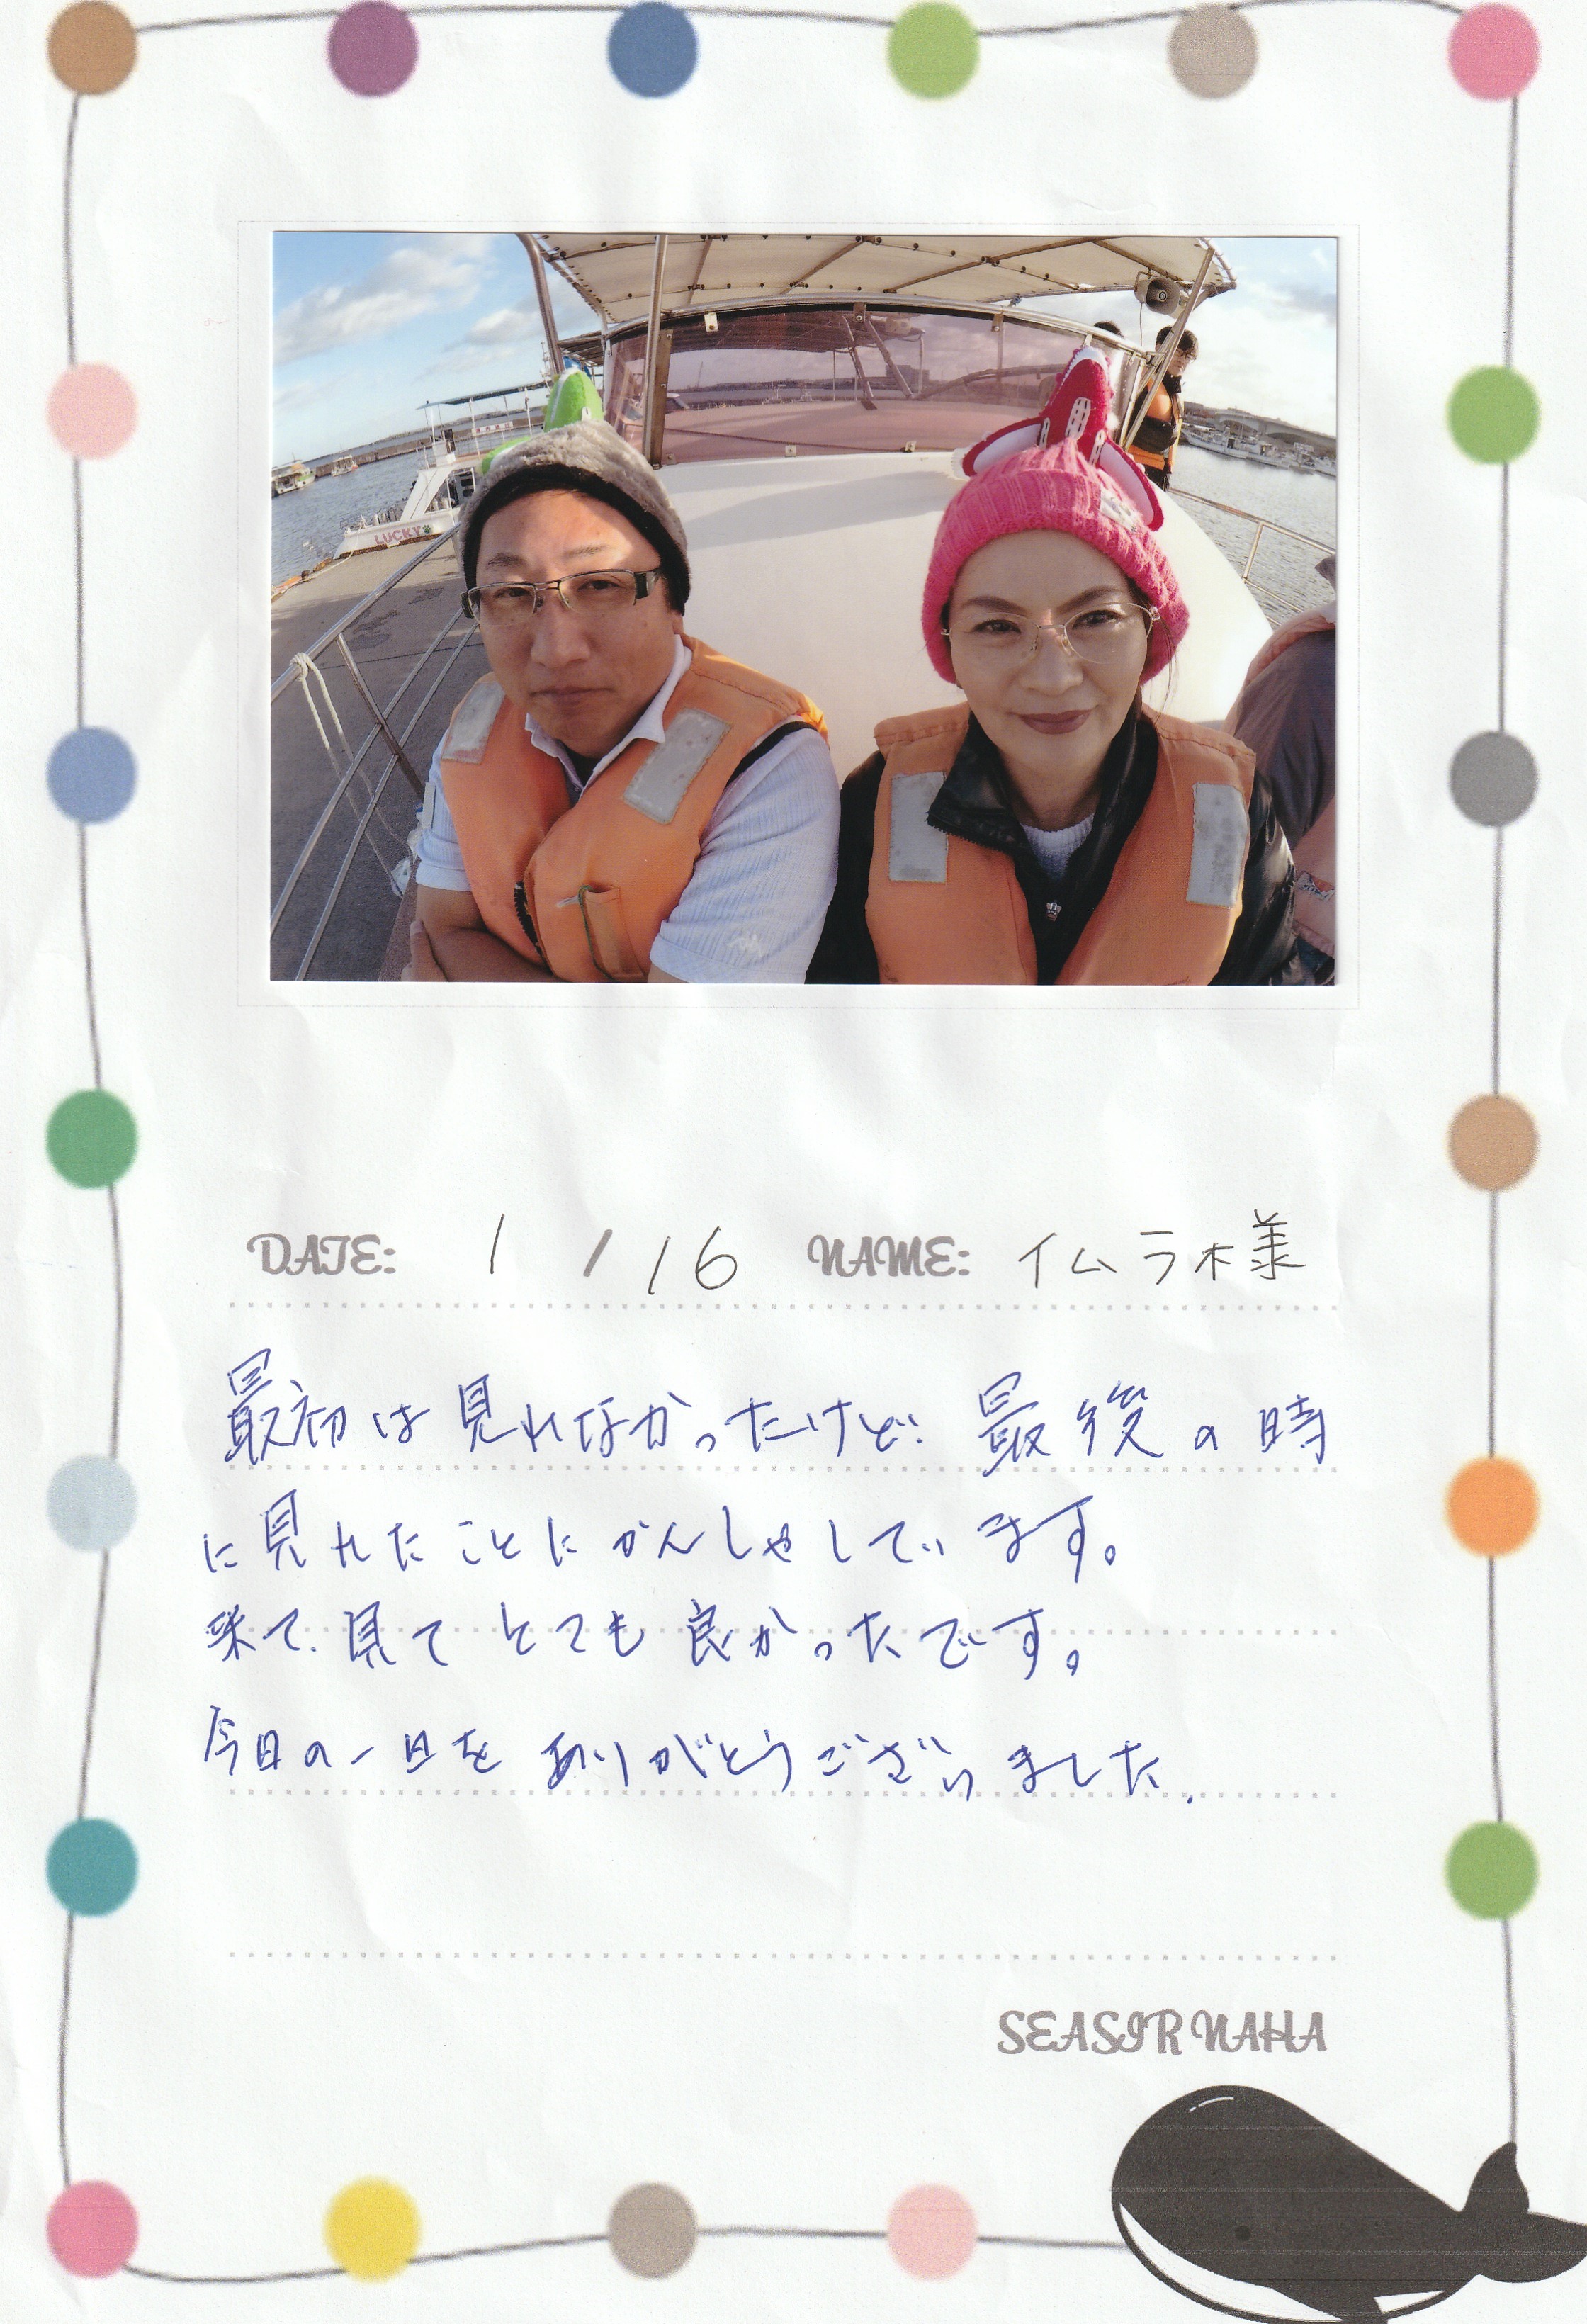 LUCKY
DATE: 1 / 16 NAME: イムラ様
最初は見れなかったけど、最後の時
に見れたことにかんしゃしています。
来て、見てとても良かったです。
今日の一日をありがとうございました.
SEASIR NAHA